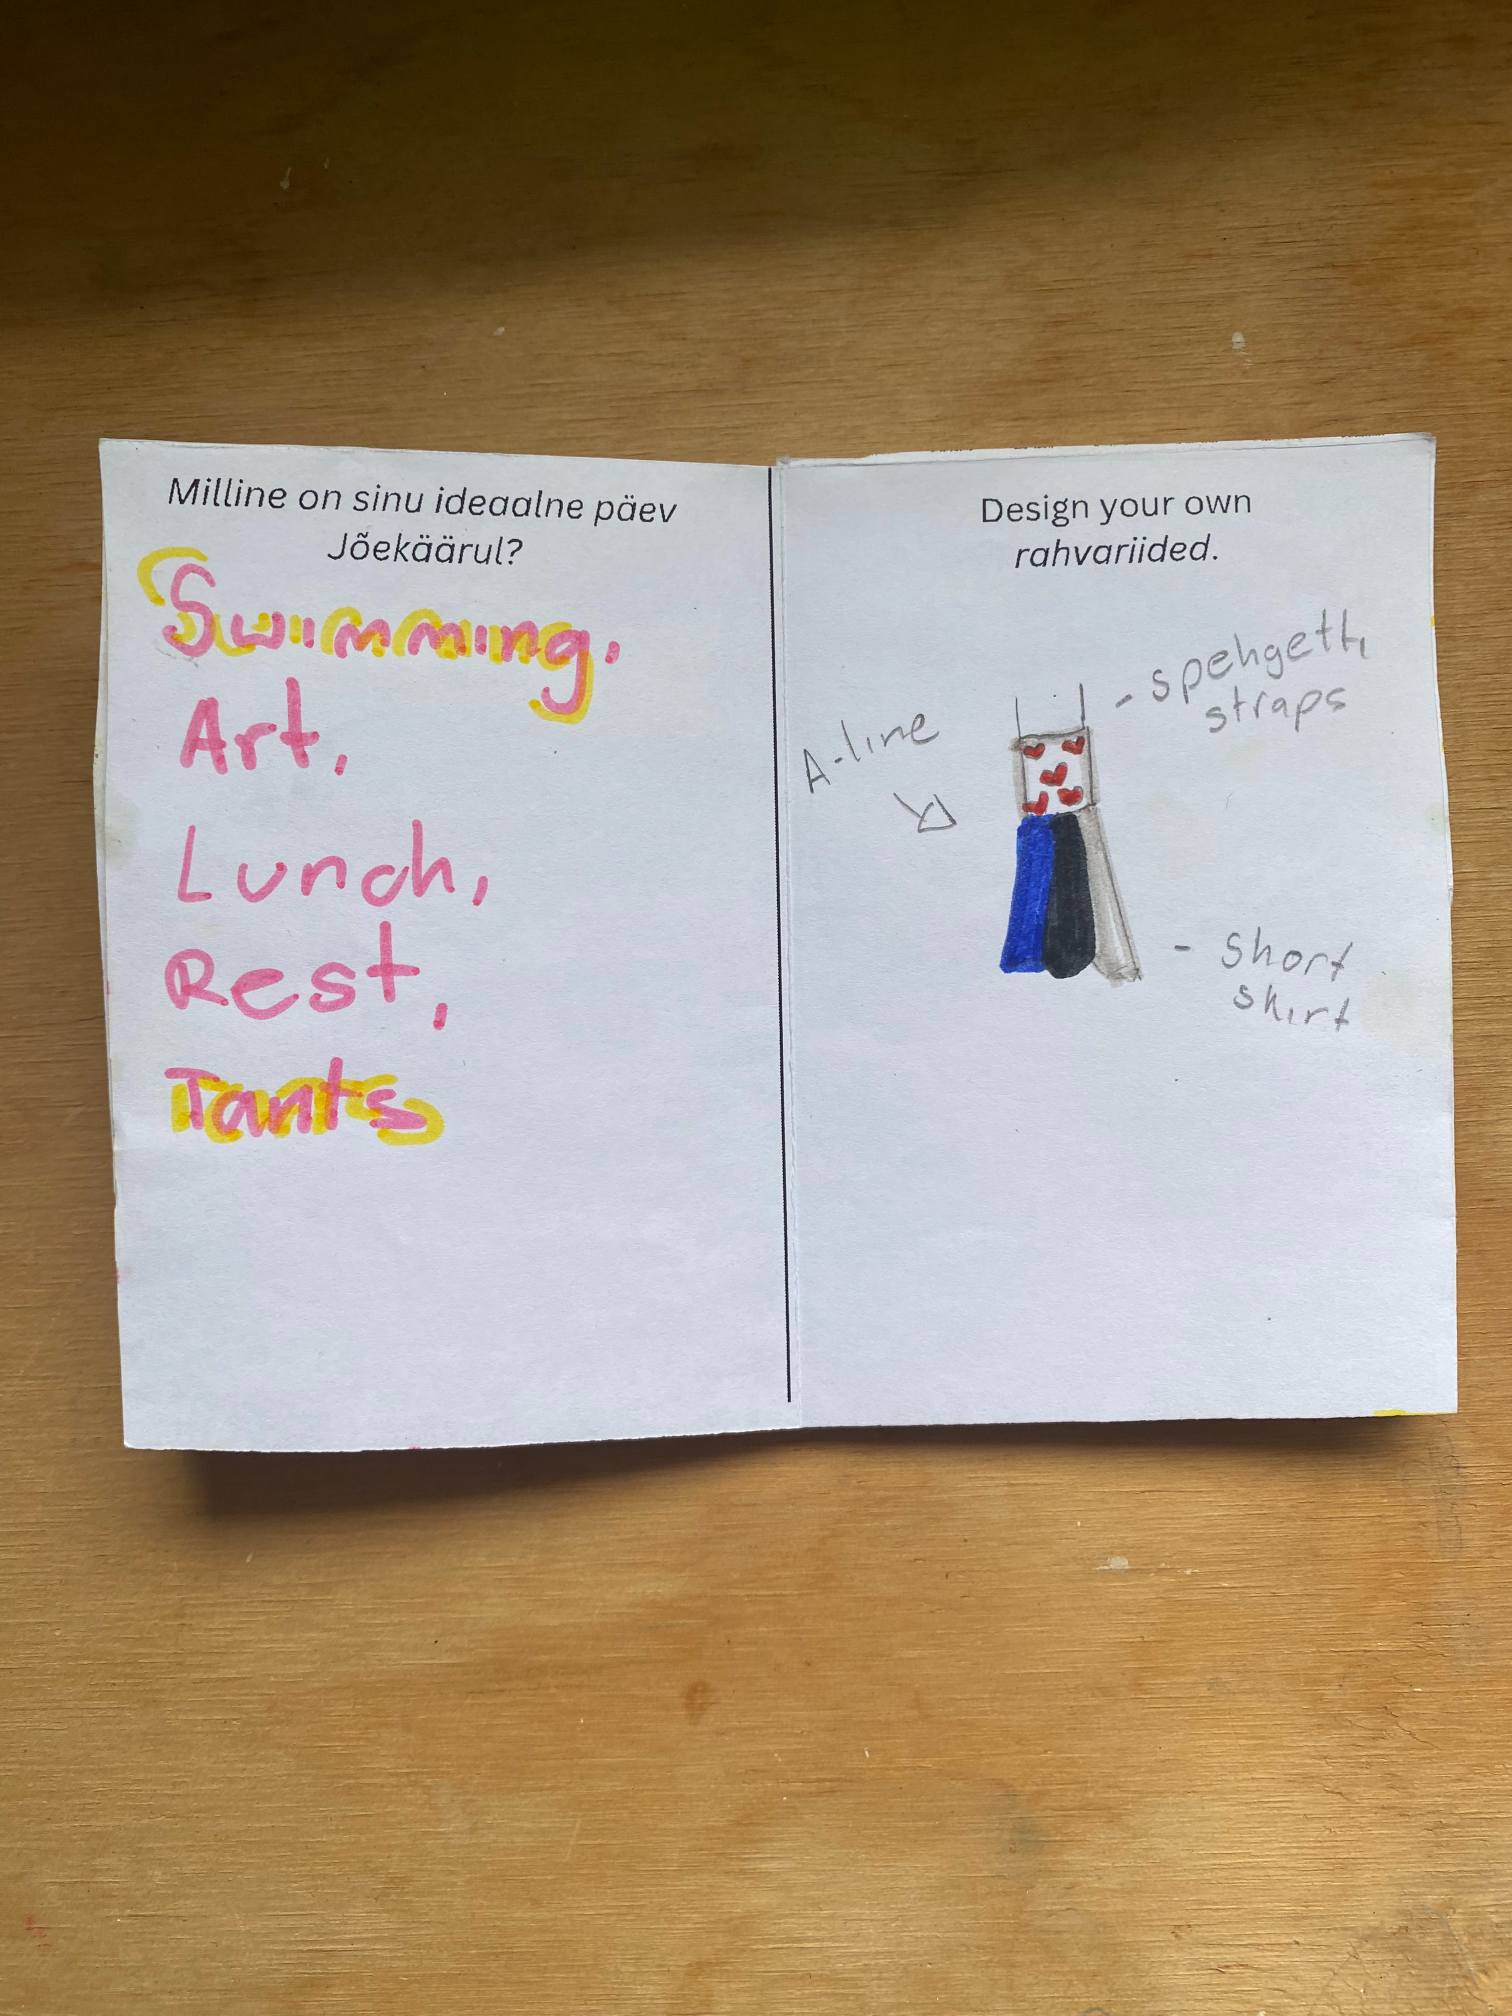 Milline on sinu ideaalne päev
Jõekäärul?
Swimming,
Art,
Lunch,
Rest,
Tants
Design your own
rahvariided.
- spehgetti
straps
A-line
- short
skirt